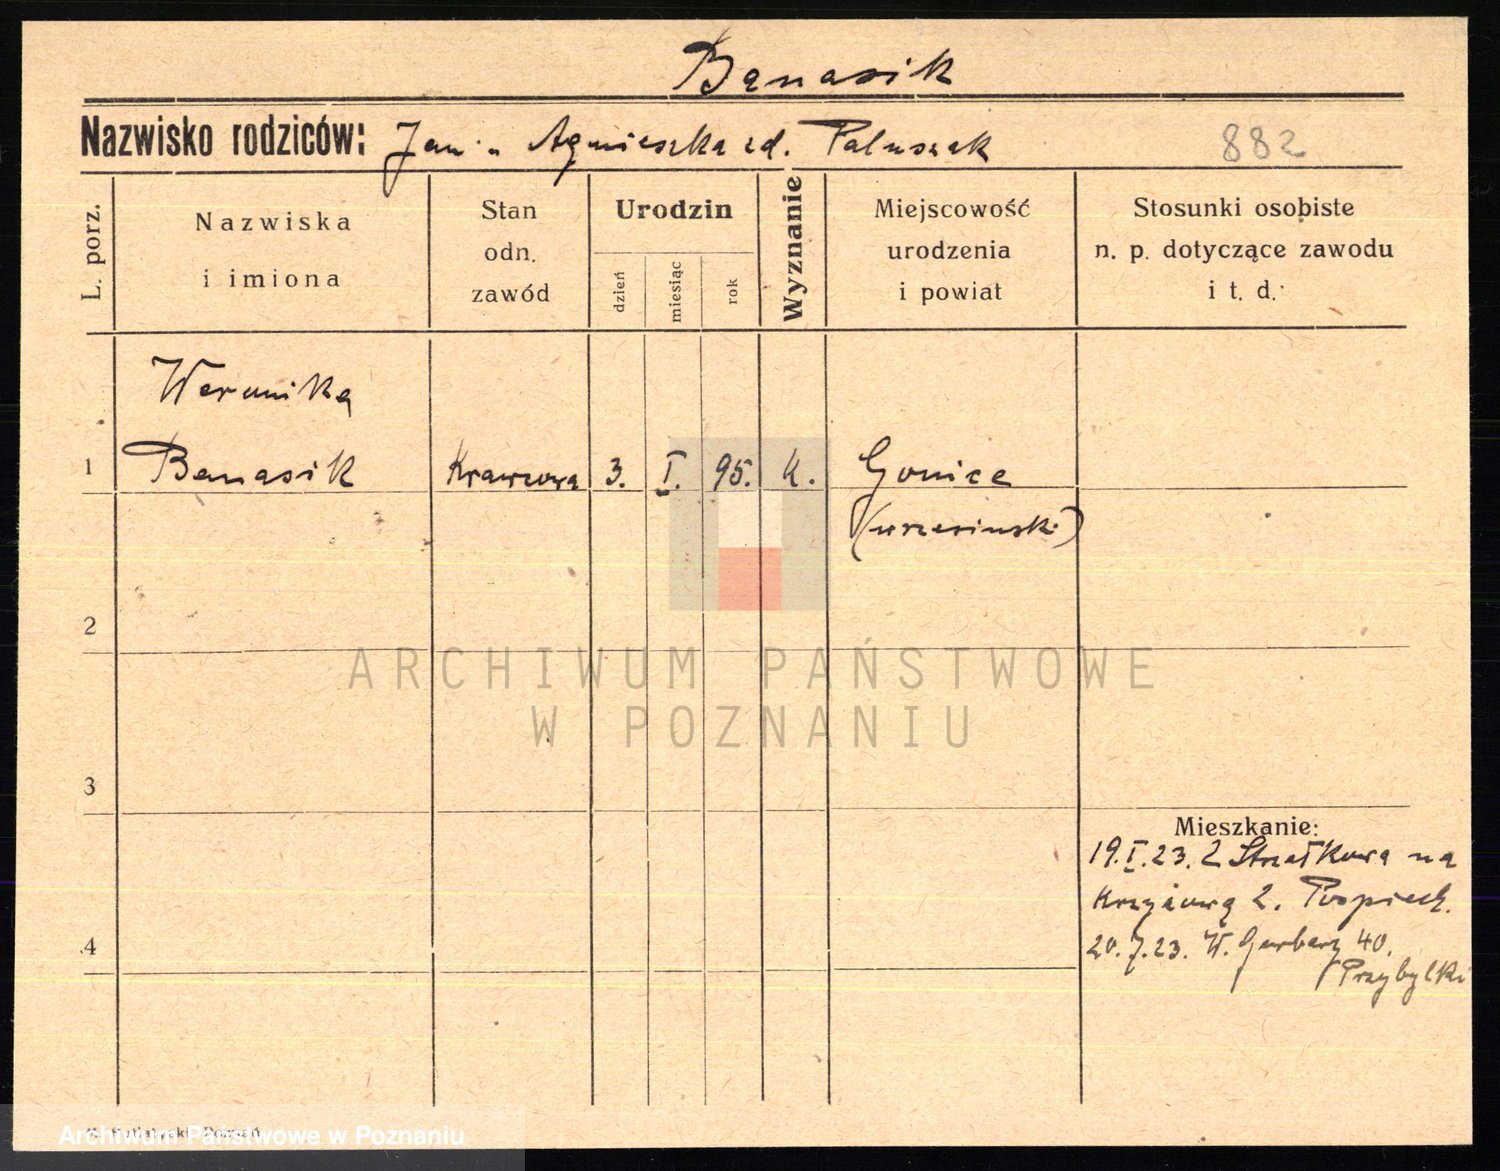 Banasik
Nazwisko rodziców: Jan - Agnieszka zd. Paluszak
882
L. porz.
Nazwiska
i imiona
Stan
odn.
zawód
Urodzin
dzień
miesiąc
rok
Wyznanie
Miejscowość
urodzenia
i powiat
Stosunki osobiste
n. p. dotyczące zawodu
i t. d.
Weronika
1 Banasik Krawcowa 3. I. 95. k. Gonice
(wrzesiński)
2
ARCHIWUM PAŃSTWOWE
W POZNANIU
3
Mieszkanie:
19.I.23. z Strzałkowa na
Krzyżową 2. Pospiech.
4
20.7.23. W. Garbary 40.
Przybylski
Archiwum Państwowe w Poznaniu
Poznań